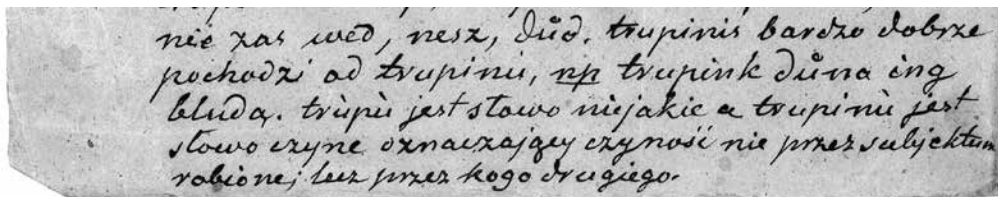 nie zas wed, nesz, důd. trupinis bardzo dobrze
pochodzi od trupinu, np trupink důna ing
bludą. trùpù jest słowo nijakie a trupinù jest
słowo czyne oznaczający czyność nie przez subjektum
robionej lecz przez kogo drugiego.